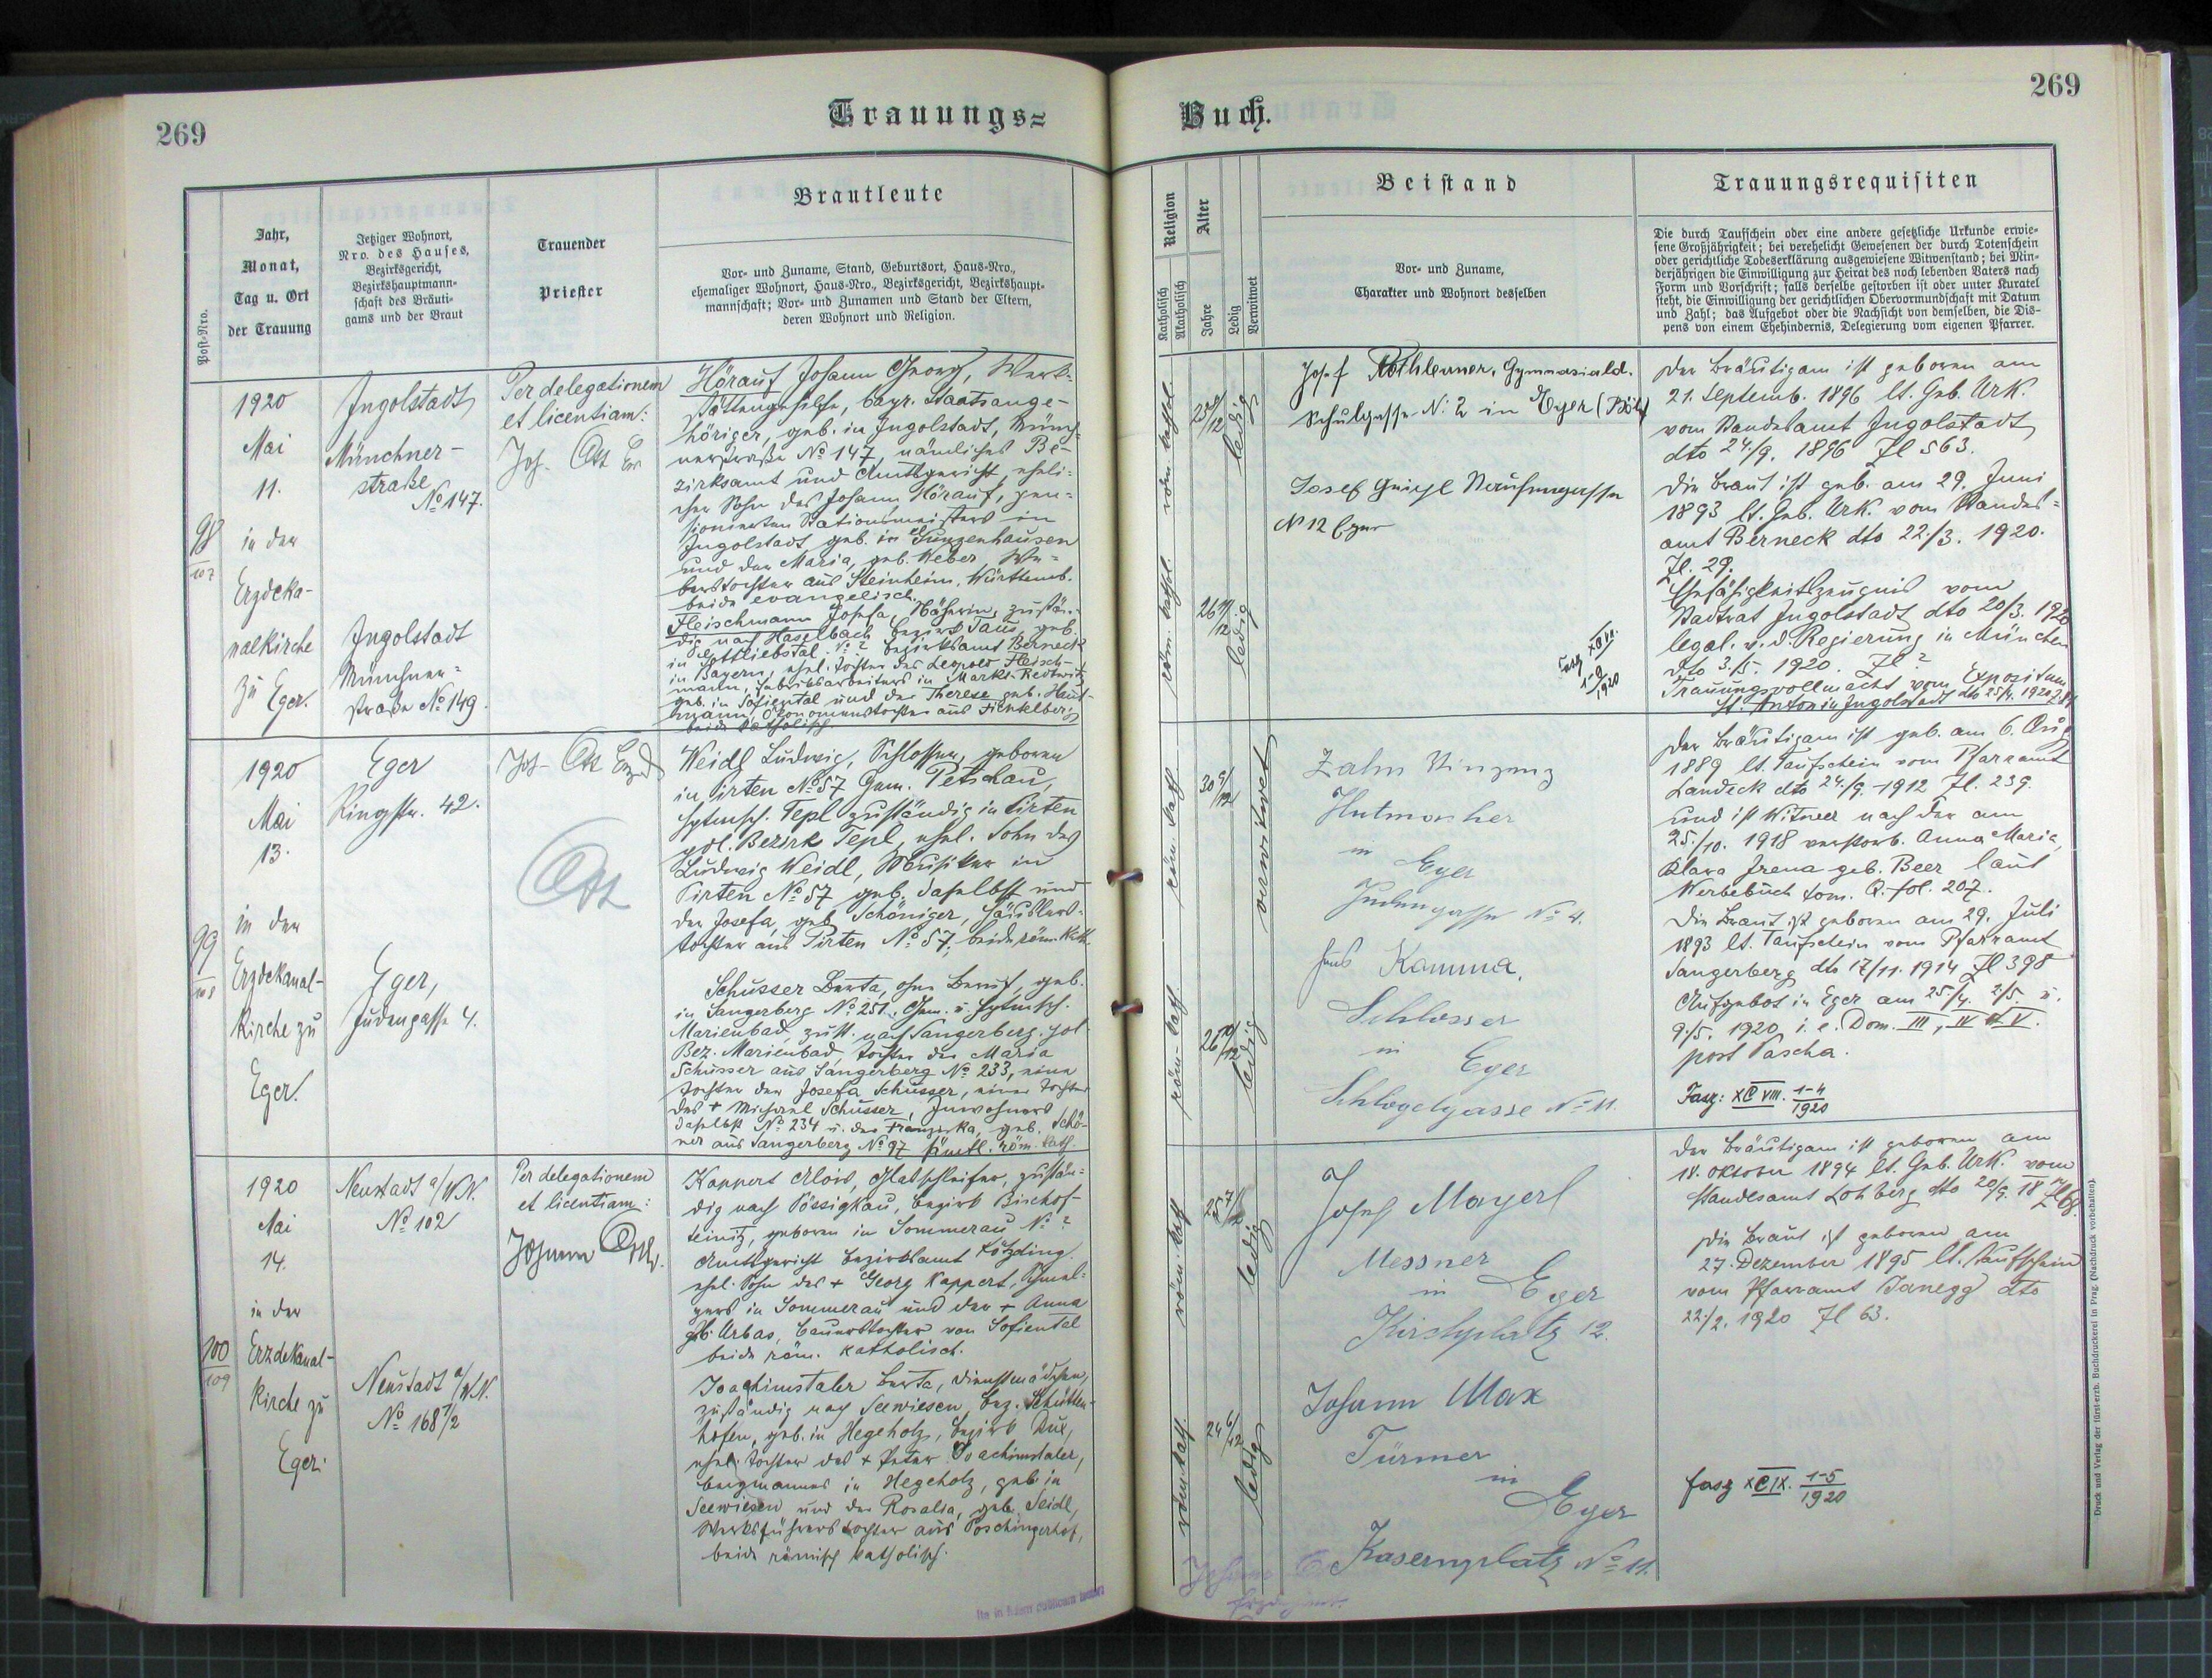 269
Trauungs=
Post-Nro.
Jahr,
Monat,
Tag u. Ort
der Trauung
Jetziger Wohnort,
Nro. des Hauses,
Bezirksgericht,
Bezirkshauptmann-
schaft des Bräuti-
gams und der Braut
Trauender
Priester
Brautleute
Vor- und Zuname, Stand, Geburtsort, Haus-Nro.,
ehemaliger Wohnort, Haus-Nro., Bezirksgericht, Bezirkshaupt-
mannschaft; Vor- und Zunamen und Stand der Eltern,
deren Wohnort und Religion.
98
107
1920
Mai
11.
in der
Erzdeka-
nalkirche
zu Eger.
Ingolstadt
Münchner-
straße
№ 147.
Ingolstadt
Münchner-
straße № 149.
Per delegationem
et licentiam:
Jos. Ott
Hörauf Johann Georg, Werk-
stättengehilfe, bayr. Staatsange-
höriger, geb. in Ingolstadt, Münch-
nerstraße № 147, nämliches Be-
zirksamt und Amtsgericht, eheli-
cher Sohn des Johann Hörauf, pen-
sionierten Stationsmeisters in
Ingolstadt geb. in Gunzenhausen
und der Maria, geb. Weber, We-
berstochter aus Steinheim, Württemb.
beide evangelisch.
Fleischmann Josefa, Näherin, zustän-
dig nach Haselbach Bezirk Taus, geb.
in Gottliebstal № 2 Bezirksamt Berneck
in Bayern, ehel. Tochter des Leopold Fleisch-
mann, Fabriksarbeiters in Markt-Redwitz
geb. in Sofiental und der Therese geb. Haut-
mann, Ökonomenstochter aus
beide katholisch.
99
108
1920
Mai
13.
in der
Erzdekanal-
Kirche zu
Eger.
Eger
Ringstr. 42.
Eger,
Judengasse 4.
Jos. Ott Erzd
Ott
Weidl Ludwig, Schlosser, geboren
in Pirten № 57 Gem. Petschau,
Hptmsch. Tepl zuständig in Pirten
pol. Bezirk Tepl, ehel. Sohn des
Ludwig Weidl, Musiker in
Pirten № 57 geb. daselbst und
der Josefa, geb. Schöniger, Häuslers-
tochter aus Pirten № 57, beide röm. Kath.
Schusser Berta, ohne Beruf, geb.
in Sangerberg № 251, Gem. u. Hptmsch.
Marienbad, zust. nach Sangerberg, pol
Bez. Marienbad, Tochter der Maria
Schusser aus Sangerberg № 233, eine
Tochter der Josefa Schusser, einer Tochter
des + Michael Schusser, Inwohners
daselbst № 234 u. der Franziska, geb. Schö-
ner aus Sangerberg № 97 sämtl. röm. kath.
100
109
1920
Mai
14.
in der
Erzdekanal-
Kirche zu
Eger.
Neustadt a/WN.
№ 102
Neustadt a/WN.
№ 168 1/2
Per delegationem
et licentiam:
Johann Ott
Kappert Alois, Glasschleifer, zustän-
dig nach Pössigkau, Bezirk Bischof-
teinitz, geboren in Sommerau № ?
Amtsgericht Bezirksamt Kötzding.
ehel. Sohn des + Georg Kappert,
in Sommerau und der + Anna
geb. Urbas, Bauerstochter von Sofiental
beide röm. katholisch.
Joachimstaler Berta, Dienstmädchen,
zuständig nach Seewiesen, Bez. Schütten-
hofen, geb. in Hegeholz, Bezirk Dux,
ehel. Tochter des + Peter Joachimstaler,
Bergmannes in Hegeholz, geb. in
Seewiesen und der Rosalia, geb. Seidl,
Werksführerstochter aus Poschingerhof,
beide römisch katholisch.
269
Buch.
Religion
Katholisch
Akatholisch
Alter
Jahre
Ledig
Verwitwet
Beistand
Vor- und Zuname,
Charakter und Wohnort desselben
Trauungsrequisiten
Die durch Taufschein oder eine andere gesetzliche Urkunde erwie-
sene Großjährigkeit; bei verehelicht Gewesenen der durch Totenschein
oder gerichtliche Todeserklärung ausgewiesene Witwenstand; bei Min-
derjährigen die Einwilligung zur Heirat des noch lebenden Vaters nach
Form und Vorschrift; falls derselbe gestorben ist oder unter Kuratel
steht, die Einwilligung der gerichtlichen Obervormundschaft mit Datum
und Zahl; das Aufgebot oder die Nachsicht von demselben, die Dis-
pens von einem Ehehindernis, Delegierung vom eigenen Pfarrer.
röm. kathol.
ledig
röm. kathol.
26 11/12
ledig
Josef Gymnasiald.
Schulgasse №: 2 in Eger (Böh)
Josef Geigl
№ 12 Eger
Der Bräutigam ist geboren am
21. Septemb. 1896 lt. Geb. Urk.
vom Standesamt Ingolstadt
dto 24/9. 1896 Zl 563.
Die Braut ist geb. am 29. Juni
1893 lt. Geb. Urk. vom Standes-
amt Berneck dto 22./3. 1920.
Zl. 29.
Ehefähigkeitszeugnis vom
Stadtrat Ingolstadt dto 20/3. 1920
legal. v. d. Regierung in München
dto 3./5. 1920. Zl ?
Trauungsvollmacht vom Expositum
St. Anton in Ingolstadt dto 25/4. 1920
röm. kath.
30 9/12
verwitwet
röm. kath.
26 10/12
ledig
Zahn Vinzenz
Hutmacher
in
Eger
Judengasse № 4.
Kamma,
Schlosser
in Eger
Schlögelgasse № 11.
Der Bräutigam ist geb. am 6. Aug
1889 lt. Taufschein vom Pfarramt
Landeck dto 24./9. 1912 Zl. 239.
und ist Witwer nach der am
25./10. 1918 verstorb. Anna Maria,
Klara Irena geb. Beer laut
Werbebuch tom. Q. fol. 207.
Die Braut ist geboren am 29. Juli
1893 lt. Taufschein vom Pfarramt
Sangerberg dto 17/11. 1914 Zl 398
Aufgebot in Eger am 25./4. 2/5. u.
9./5. 1920, i. e. Dom. III, IV et V.
post Pascha.
Fasz: XCVIII. 1-4
1920
röm. kath
ledig
röm. kath.
24 6/12
ledig
Josef Mayerl
Messner
in Eger
Kirchplatz 12.
Johann Max
Türmer
in
Eger
Kasernplatz № 11.
Der Bräutigam ist geboren am
18. Oktober 1894 lt. Geb. Urk. vom
Standesamt Lohberg dto 20/9.
Die Braut ist geboren am
27. Dezember 1895 lt. Taufschein
vom Pfarramt Janegg dto
22./2. 1920 Zl 63.
fasz XCIX. 1-5
1920
Druck und Verlag der fürst-erzb. Buchdruckerei in Prag. (Nachdruck vorbehalten).